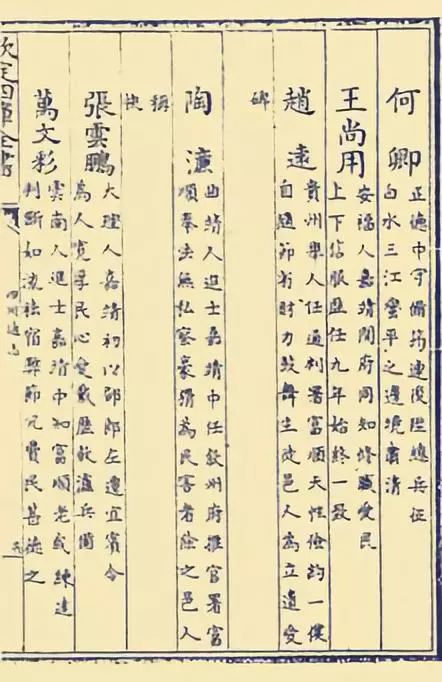 何卿
正德中守備筠連後陞總兵征
白水三江蠻平之邊境肅清
王尚用
安福人嘉靖間府同知修職愛民
上下信服歷任九年始終一致
趙遠
貴州舉人任通判署富順天性儉約一僕
自隨節省財力鼓舞生徒邑人為立遺愛
碑
陶
曲靖人進士嘉靖中任敘州府推官署富
順奉法無私察豪猾為民害者除之邑人
稱
快
張雲鵬
大理人嘉靖初以部郎左遷宜賓令
為人寬厚民心愛戴歷敘瀘兵備
萬文彩
雲南人進士嘉靖中知富順老成練達
判斷如流祛宿弊節冗費民甚德之
欽定四庫全書
四川通志